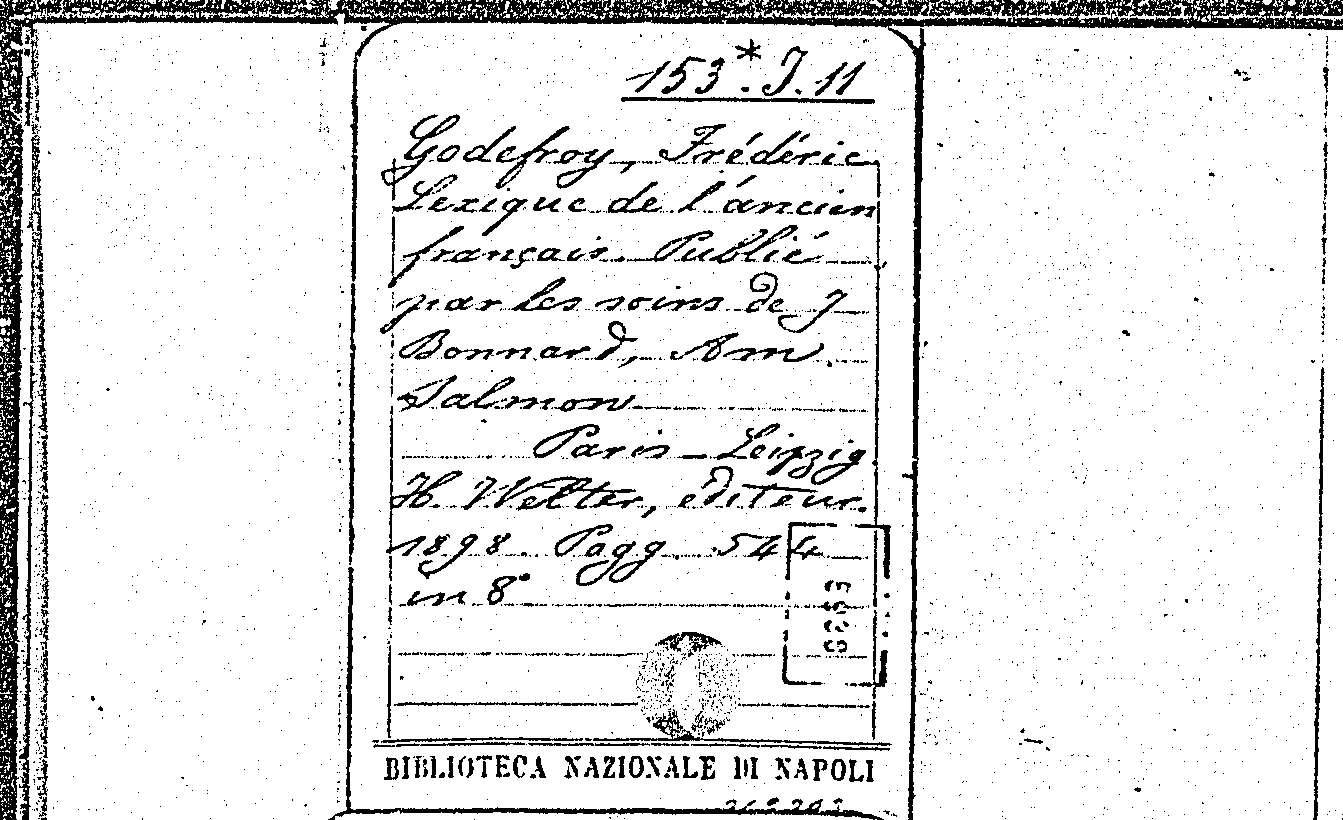 153*.J.11
Godefroy, Frédéric
Lexique de l'áncien
français. Publié
par les soins de J
Bonnard, Am.
Salmon
Paris - Leipzig
H. Welter, éditeur.
1898. Pagg. 544
in 8°
BIBLIOTECA NAZIONALE DI NAPOLI